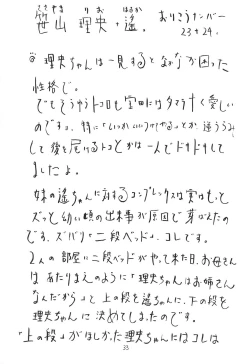 ささやま りお はるか
笹山 理央・遙。
おりこうナンバー
23+24.
◎ 理央ちゃんは一見するとなかなか困った
性格で。
でもそうゆうトコロも宝田にはタマラナく愛しい
のですョ。特に「いっかいコケてやる」とか違ううらみ
して後を尾けるトコとかは一人でドキドキして
ましたよ。
妹の遙ちゃんに対するコンプレックスは実はもっと
ズっと幼い頃の出来事が原因で芽ばえたの
です。ズバリ「二段ベッド」。コレです。
2人の部屋に二段ベッドがやって来た日、お母さん
はあたりまえのように「理央ちゃんはお姉さん
なんだから」って上の段を遙ちゃんに、下の段を
理央ちゃんに決めてしまったのです。
「上の段」がほしかった理央ちゃんにはコレは
23